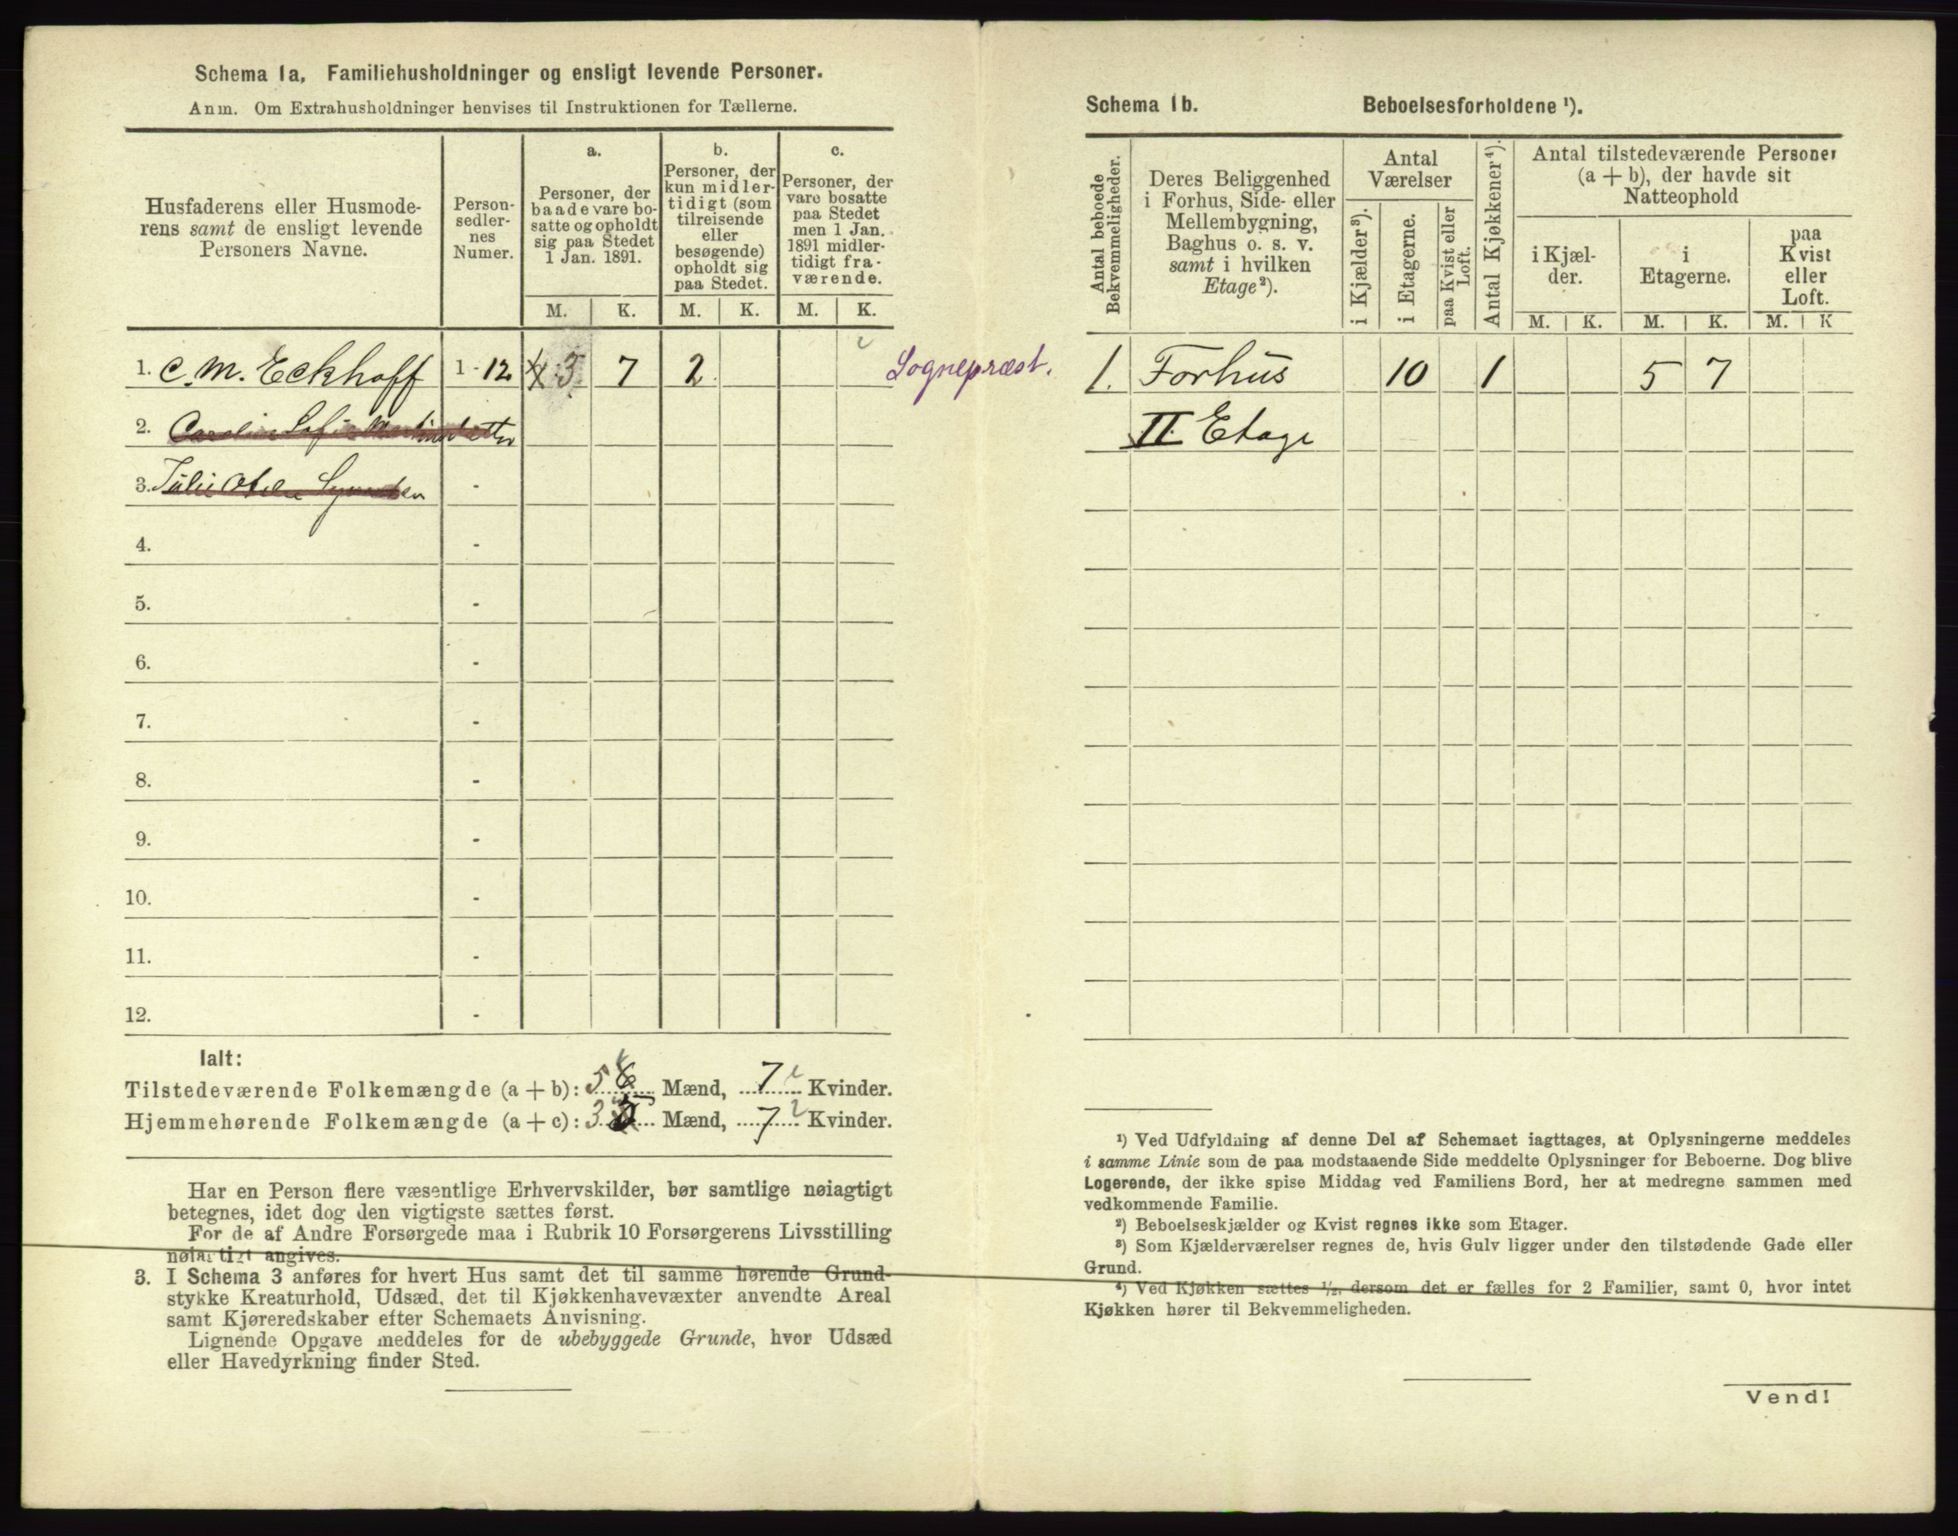 Schema 1a, Familiehusholdninger og ensligt levende Personer.
Anm. Om Extrahusholdninger henvises til Instruktionen for Tællerne.
Husfaderens eller Husmoderens samt de ensligt levende Personers Navne.
Personsedlernes Numer.
a.
Personer, der baade vare bosatte og opholdt sig paa Stedet 1 Jan. 1891.
b.
Personer, der kun midlertidigt (som tilreisende eller besøgende) opholdt sig paa Stedet.
c.
Personer, der vare bosatte paa Stedet men 1 Jan. 1891 midlertidigt fraværende.
M. K. M. K. M. K.
1. C. M. Eckhoff 1-12 3 7 2 Sognepræst.
2.
3. Julie -
4. -
5. -
6. -
7. -
8. -
9. -
10. -
11. -
12. -
Ialt:
Tilstedeværende Folkemængde (a + b): 5 Mænd, 7 Kvinder.
Hjemmehørende Folkemængde (a + c): 3 Mænd, 7 Kvinder.
Har en Person flere væsentlige Erhvervskilder, bør samtlige nøiagtigt
betegnes, idet dog den vigtigste sættes først.
For de af Andre Forsørgede maa i Rubrik 10 Forsørgerens Livsstilling
nøiagtigt angives.
3. I Schema 3 anføres for hvert Hus samt det til samme hørende Grund-
stykke Kreaturhold, Udsæd, det til Kjøkkenhavevæxter anvendte Areal
samt Kjøreredskaber efter Schemaets Anvisning.
Lignende Opgave meddeles for de ubebyggede Grunde, hvor Udsæd
eller Havedyrkning finder Sted.
Schema 1b. Beboelsesforholdene ¹).
Antal beboede Bekvemmeligheder.
Deres Beliggenhed i Forhus, Side- eller Mellembygning, Baghus o. s. v. samt i hvilken Etage²).
Antal Værelser
i Kjælder³).
i Etagerne.
paa Kvist eller Loft.
Antal Kjøkkener⁴).
Antal tilstedeværende Personer (a + b), der havde sit Natteophold
i Kjælder.
i Etagerne.
paa Kvist eller Loft.
M. K. M. K. M. K
1. Forhus 10 1 5 7
II Etage
¹) Ved Udfyldning af denne Del af Schemaet iagttages, at Oplysningerne meddeles
i samme Linie som de paa modstaaende Side meddelte Oplysninger for Beboerne. Dog blive
Logerende, der ikke spise Middag ved Familiens Bord, her at medregne sammen med
vedkommende Familie.
²) Beboelseskjælder og Kvist regnes ikke som Etager.
³) Som Kjælderværelser regnes de, hvis Gulv ligger under den tilstødende Gade eller
Grund.
⁴) Ved Kjøkken sættes ½, dersom det er fælles for 2 Familier, samt 0, hvor intet
Kjøkken hører til Bekvemmeligheden.
Vend!